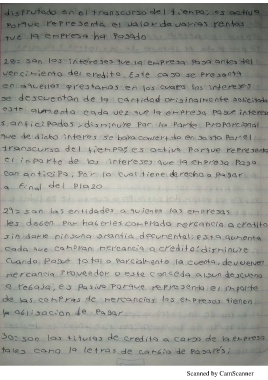 disfrutado en el transcurso del tiempo; es activo
Porque representa el valor de varias rentas
que la empresa ha Pagado.
28= son los intereses que la empresa Paga antes del
vencimiento del credito. Este caso se presenta
en aquellos prestamos en los cuales los intereses
se descuentan de la cantidad originalmente solicitada
este aumenta cada vez que la empresa Pague intereses
anticipados; disminuye Por la Parte Proporcional
que de dicho interes se haya convertido en gasto Por el
transcurso del tiempo es activo Porque representa
el importe de los intereses que la empresa Paga
con anticipa, Por lo cual tiene derecho a Pagar
a Final del Plazo.
29= son las entidades a quienes las empresas
les deben Por haberles comprado mercancia a credito
sin darle ninguna garantia documental; esta aumenta
cada que compran mercancia a credito; disminuye
cuando Pague total o Parcialmente la cuenta, devuelver
mercancia Proveedor o este conceda algun descuento
o rebaja, es Pasivo Porque representa el importe
de las compras de mercancias las empresas tienen
la obligacion de Pagar.
30= son los titulos de credito a cargo de la empresa
tales como la letras de cambio de Pagares;
Scanned by CamScanner